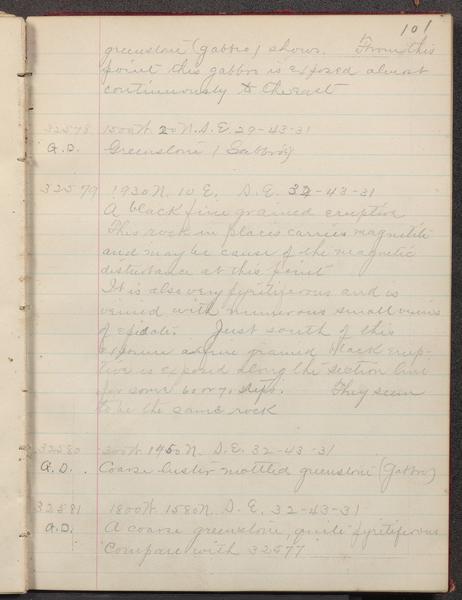 101
greenstone (gabbro) shows. From this
point this gabbro is exposed almost
continuously to the east
32578 1500W. 20N. S.E. 29-43-31
G.D. Greenstone (Gabbro)
32579 1930N. 10E. S.E. 32-43-31
A black fine grained eruptive
This rock in places carries magnetite
and may be cause of the magnetic
disturbance at this point
It is also very pyritiferous and is
veined with numerous small veins
of epidote. Just south of this
exposure a fine grained black erup-
tive is exposed along the section line
for some 60 or 70 steps. They seem
to be the same rock
32580 300W. 1450N. S.E. 32-43-31
G.D. Coarse luster mottled greenstone (Gabbro)
32581 1800W. 1580N. S.E. 32-43-31
G.D. A coarse greenstone, quite pyritiferous
Compare with 32577